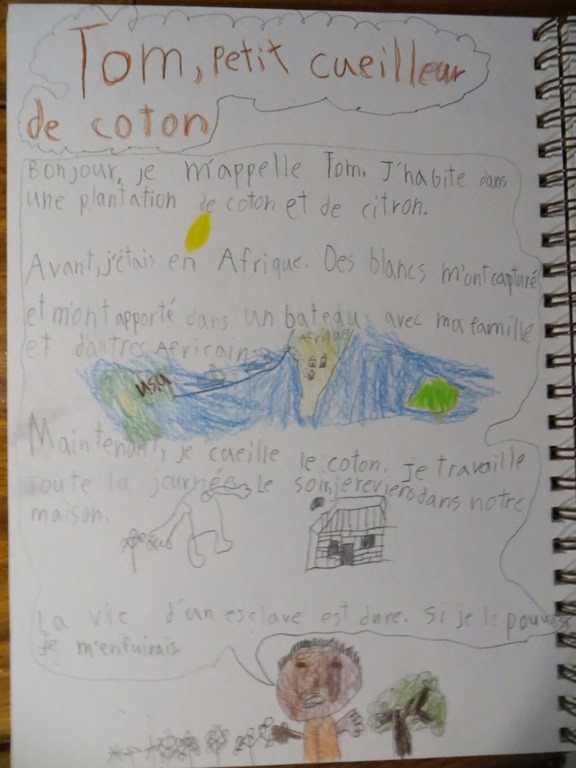 Tom, petit cueilleur
de coton
Bonjour, je m'appelle Tom. J'habite dans
une plantation de coton et de citron.
Avant, j'étais en Afrique. Des blancs m'ont capturé
et m'ont apporté dans un bateau avec ma famille
et d'autres Africains
Afrique
USA
Maintenant, je cueille le coton. je travaille
toute la journée. Le soir je reviens dans notre
maison.
La vie d'un esclave est dure. Si je le pouvais
Je m'enfuirais.